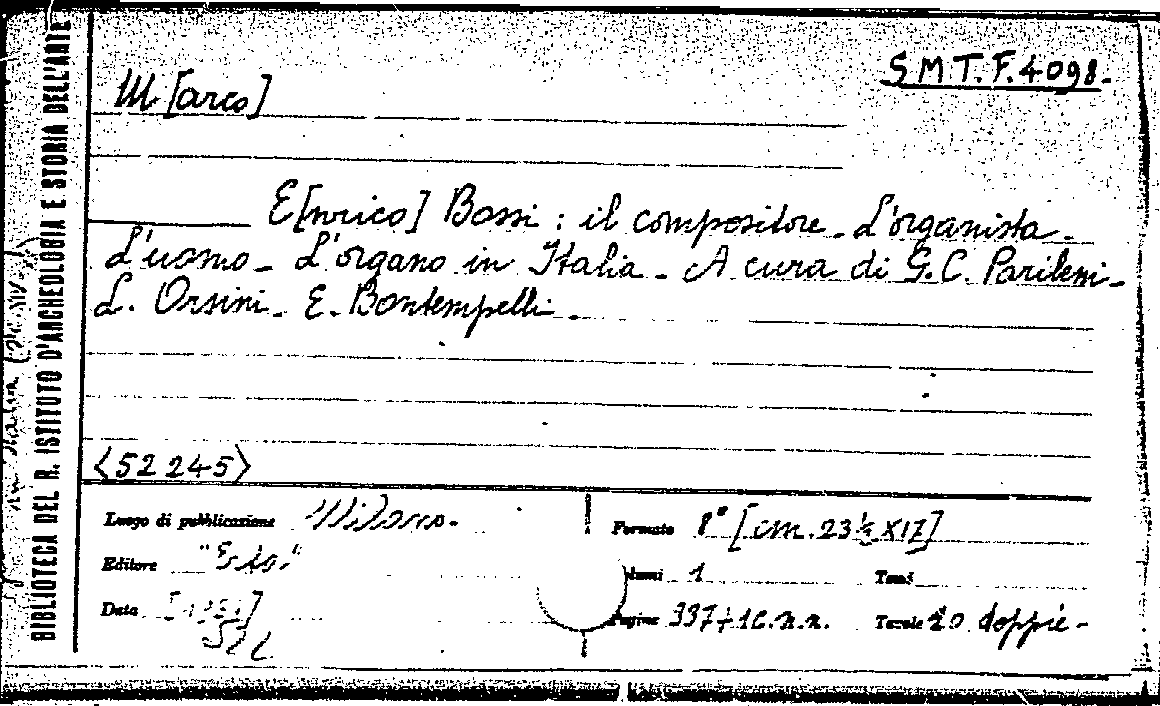 S M T. F. 4098.
M[arco]
E[nrico] Bossi : il compositore - L'organista -
L'uomo - L'organo in Italia - A cura di G.C. Paribeni -
L. Orsini - E. Bontempelli -
<52245>
Luogo di pubblicazione Milano.
Editore "Erta"
Data
Formato 8° [cm. 23½ X 17]
Volumi 1
Tomi
Pagine 337 + 1 c. n. n.
Tavole 20 doppie -
BIBLIOTECA DEL R. ISTITUTO D'ARCHEOLOGIA E STORIA DELL'ARTE